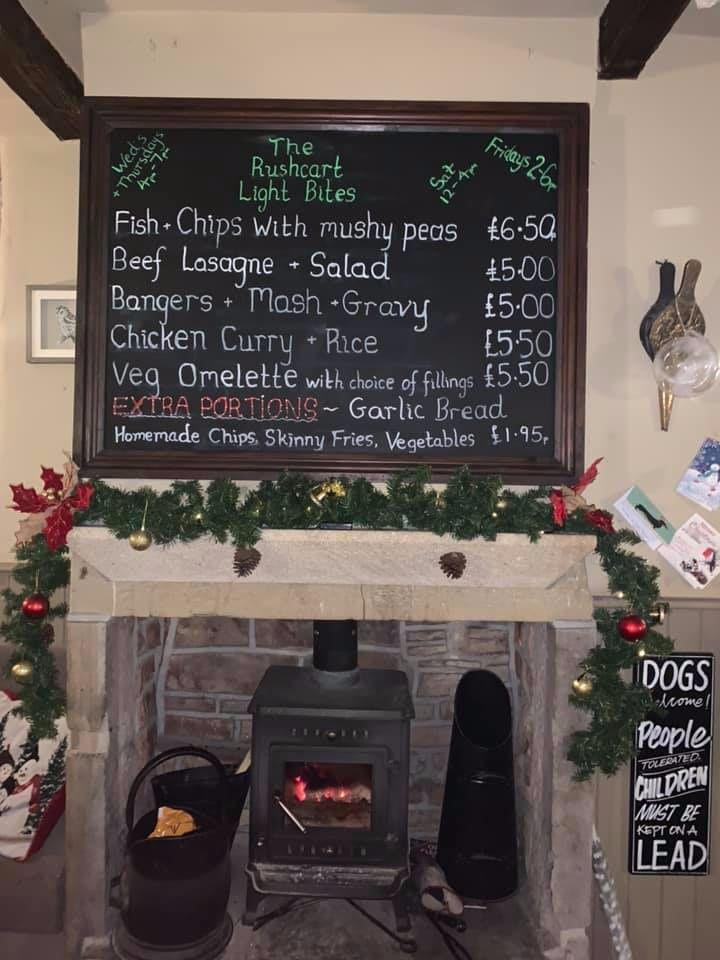 Wed's
+ Thursdays
4pm 7pm
The
Rushcart
Light Bites
Sat
12-4pm
Fridays 2-6pm
Fish + Chips with mushy peas £6.50
Beef Lasagne + Salad £5.00
Bangers + Mash + Gravy £5.00
Chicken Curry + Rice £5.50
Veg Omelette with choice of fillings £5.50
EXTRA PORTIONS ~ Garlic Bread
Homemade Chips, Skinny Fries, Vegetables £1.95p
DOGS
Welcome!
People
TOLERATED.
CHILDREN
MUST BE
KEPT ON A
LEAD